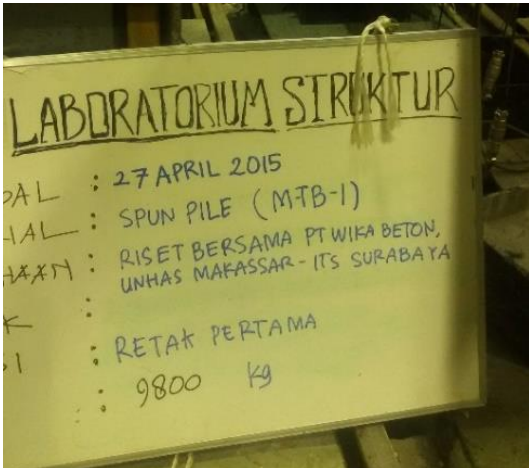 LABORATORIUM STRUKTUR
: 27 APRIL 2015
: SPUN PILE (MTB-1)
: RISET BERSAMA PT WIKA BETON,
UNHAS MAKASSAR - ITS SURABAYA
:
: RETAK PERTAMA
: 9800 kg